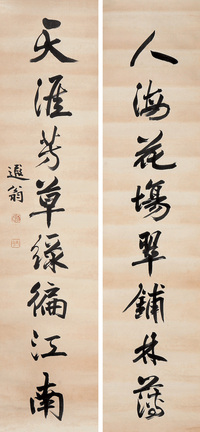 人海花場翠鋪林蔭
天涯芳草綠徧江南
遐翁